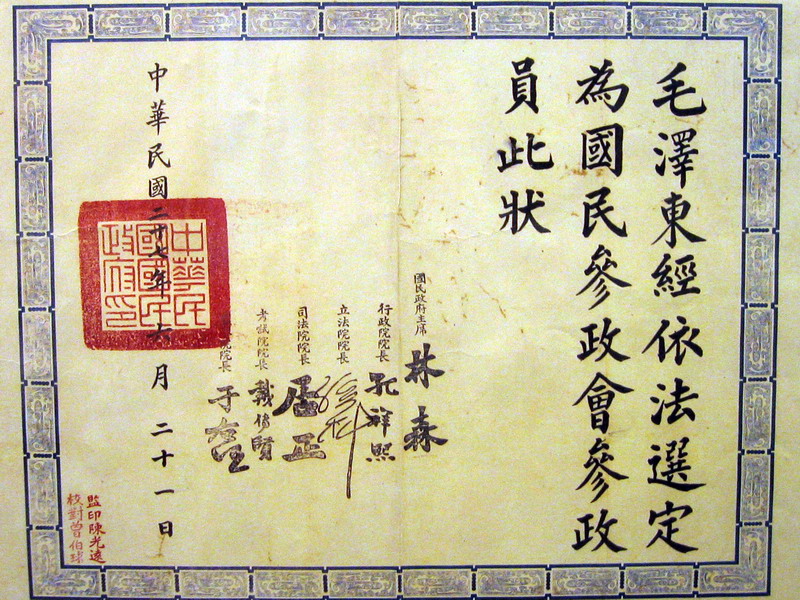 毛澤東經依法選定
為國民參政會參政
員此狀
國民政府主席 林森
行政院院長 孔祥熙
立法院院長 孫科
司法院院長 居正
考試院院長 戴傳賢
院院長 于右任
中華民國二十七年六月二十一日
中華民
國國民
政府印
監印陳光遠
校對曾伯